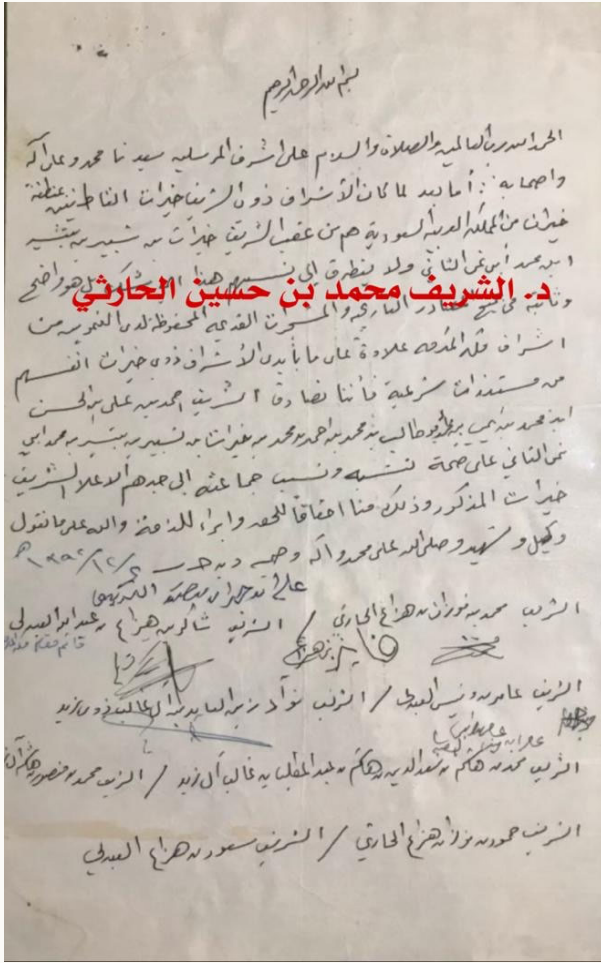 بسم الله الرحمن الرحيم
الحمد لله رب العالمين والصلاة والسلام على اشرف المرسلين سيدنا محمد وعلى آله
واصحابه :: أما بعد لما كان الأشراف ذوي الشريف خيرات القاطنين بمنطقة
جيزان من المملكة العربية السعودية هم من عقب الشريف خيرات بن شبير بن بشير
ابن محمد أبي نمي الثاني ولا يتطرق إلى نسبهم هذا شك بل هو واضح
د. الشريف محمد بن حسين الحارثي
وثابت في المصادر التاريخية والمشجرات القديمة المحفوظة لدى المعمرين من
اشراف مكة المكرمة علاوة على ما بأيدي الأشراف ذوي خيرات انفسهم
من مستندات شرعية فأننا نصادق الشريف احمد بن علي بن الحسن
ابن محمد بن يحيى بن ابو طالب بن محمد بن احمد بن محمد بن خيرات بن شبير بن بشير بن محمد ابي
نمي الثاني على صحة نسبه ونسب جماعته إلى جدهم الاعلا الشريف
خيرات المذكور وذلك منا احقاقاً للحق وابراء للذمة والله على ما نقول
وكيل وشهيد وصلى الله على محمد وآله وصحبه وسلم
الشريف محمد بن فوزان بن هزاع الحارثي / الشريف شاكر بن هزاع بن عبد الله العبدلي
الشريف عامر بن ونس العبدلي / الشريف نواد زين العابدين آل غالب ذوي زيد
الشريف محمد بن هاشم بن سعد الدين بن هاشم بن عبد المطلب بن غالب آل زيد / الشريف محمد بن منصور بن هاشم آل
الشريف حمود بن فوزان بن هزاع الحارثي / الشريف سعود بن هزاع العبدلي